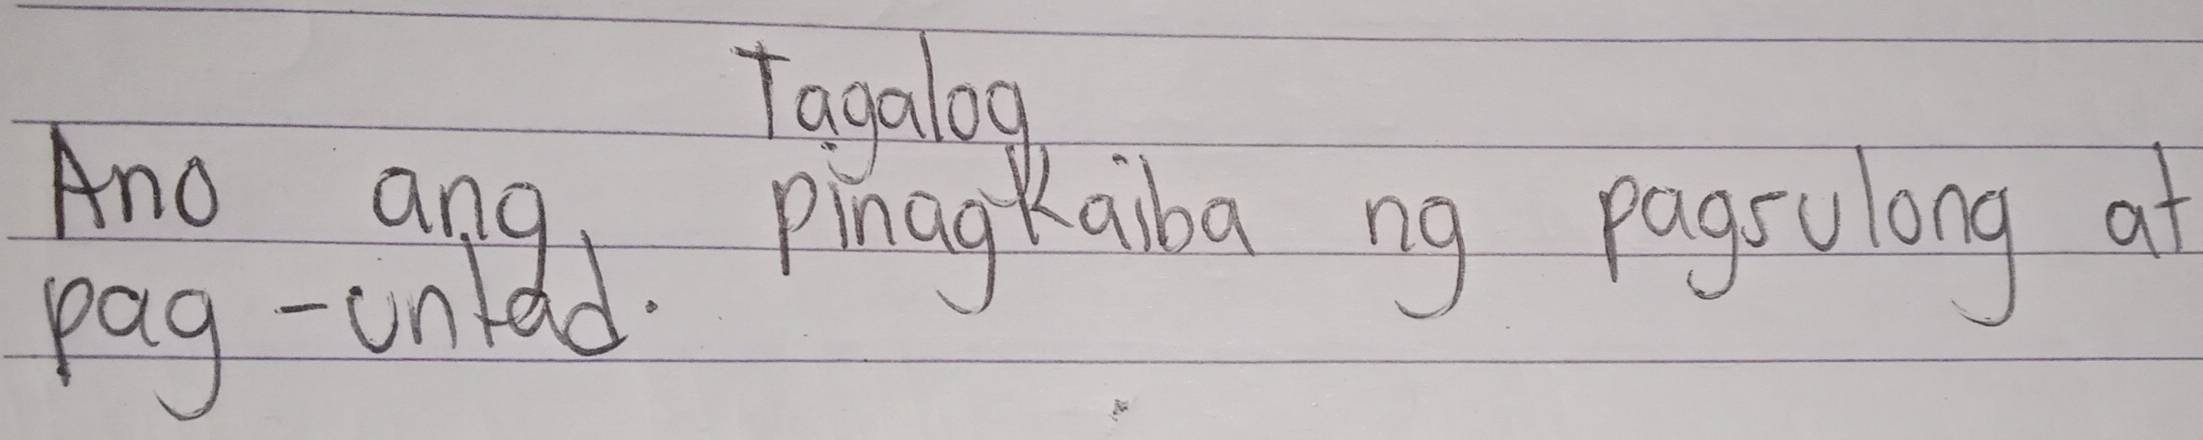 Tagalog
Ano ang pinagkaiba ng pagsulong at
pag-unlad.